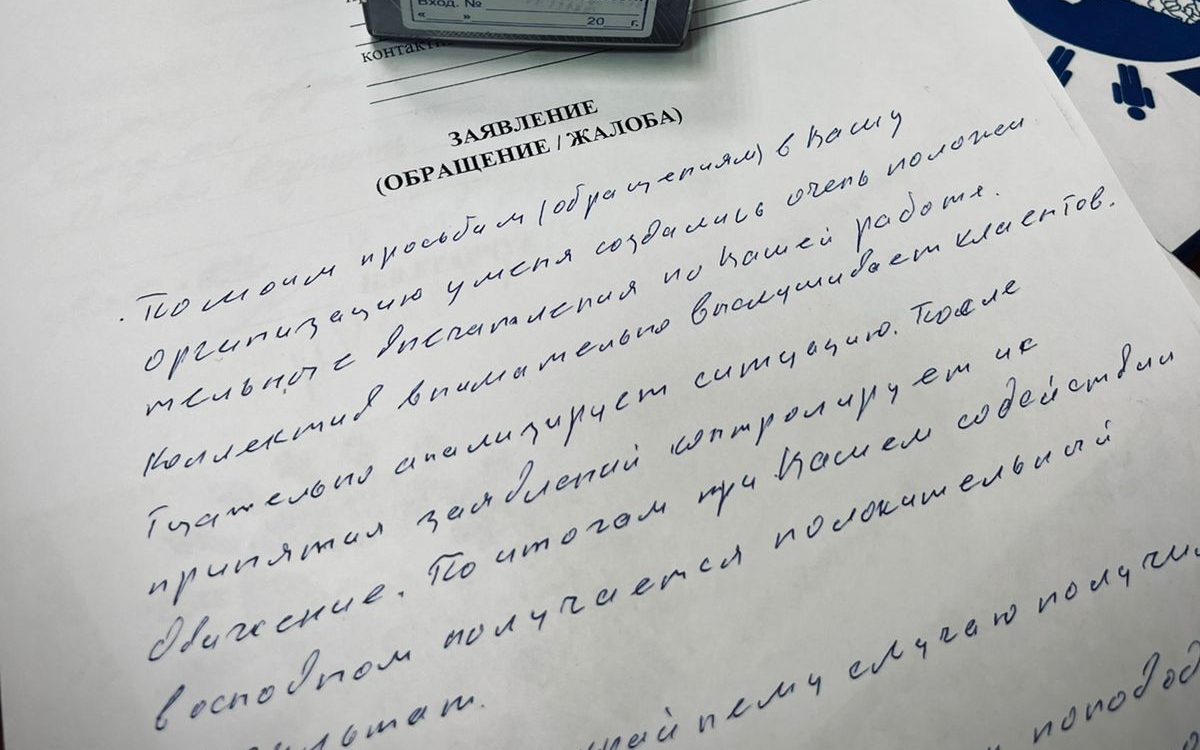 Вход. №
« » 20 г.
контакт
ЗАЯВЛЕНИЕ
(ОБРАЩЕНИЕ / ЖАЛОБА)
По моим просьбам (обращениям) в Вашу
организацию у меня создались очень положи
тельные впечатления по Вашей работе.
Коллектив внимательно выслушивает клиентов.
Тщательно анализирует ситуацию. После
принятия заявлений контролирует их
движение. По итогам при Вашем содействии
в основном получается положительный
нему случаю получи